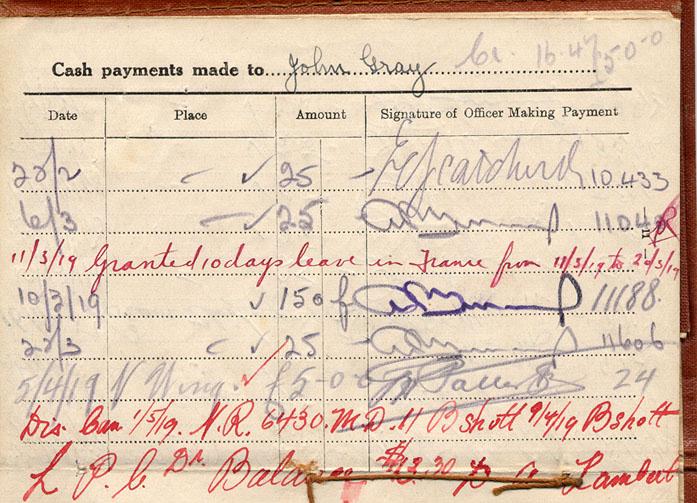 Cash payments made to John Gray Cr. 16.4 £50-0
Date Place Amount Signature of Officer Making Payment
22/2 25 10.433
6/3 25
11/3/19 Granted 10 days leave in France from 11/3/19 to 20/3/19
10/3/19 150 f 11188
22/3 25 11606
5/4/19 £5-0-0 24
Dis. Can 1/5/19. N.R. 6430. M.D. 11 Bshott 9/4/19 Bshott
L P C Dr. Balance $12.30 Lambert